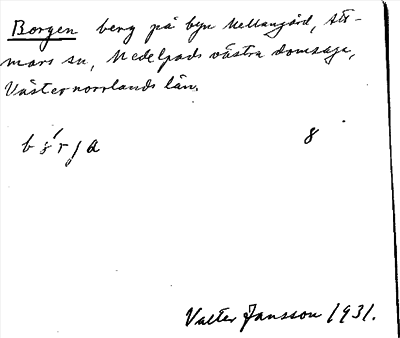 Borgen berg på byn Mellangård, Att-
mars sn, Medelpads västra domsaga,
Västernorrlands län.
8
Valter Jansson 1931.